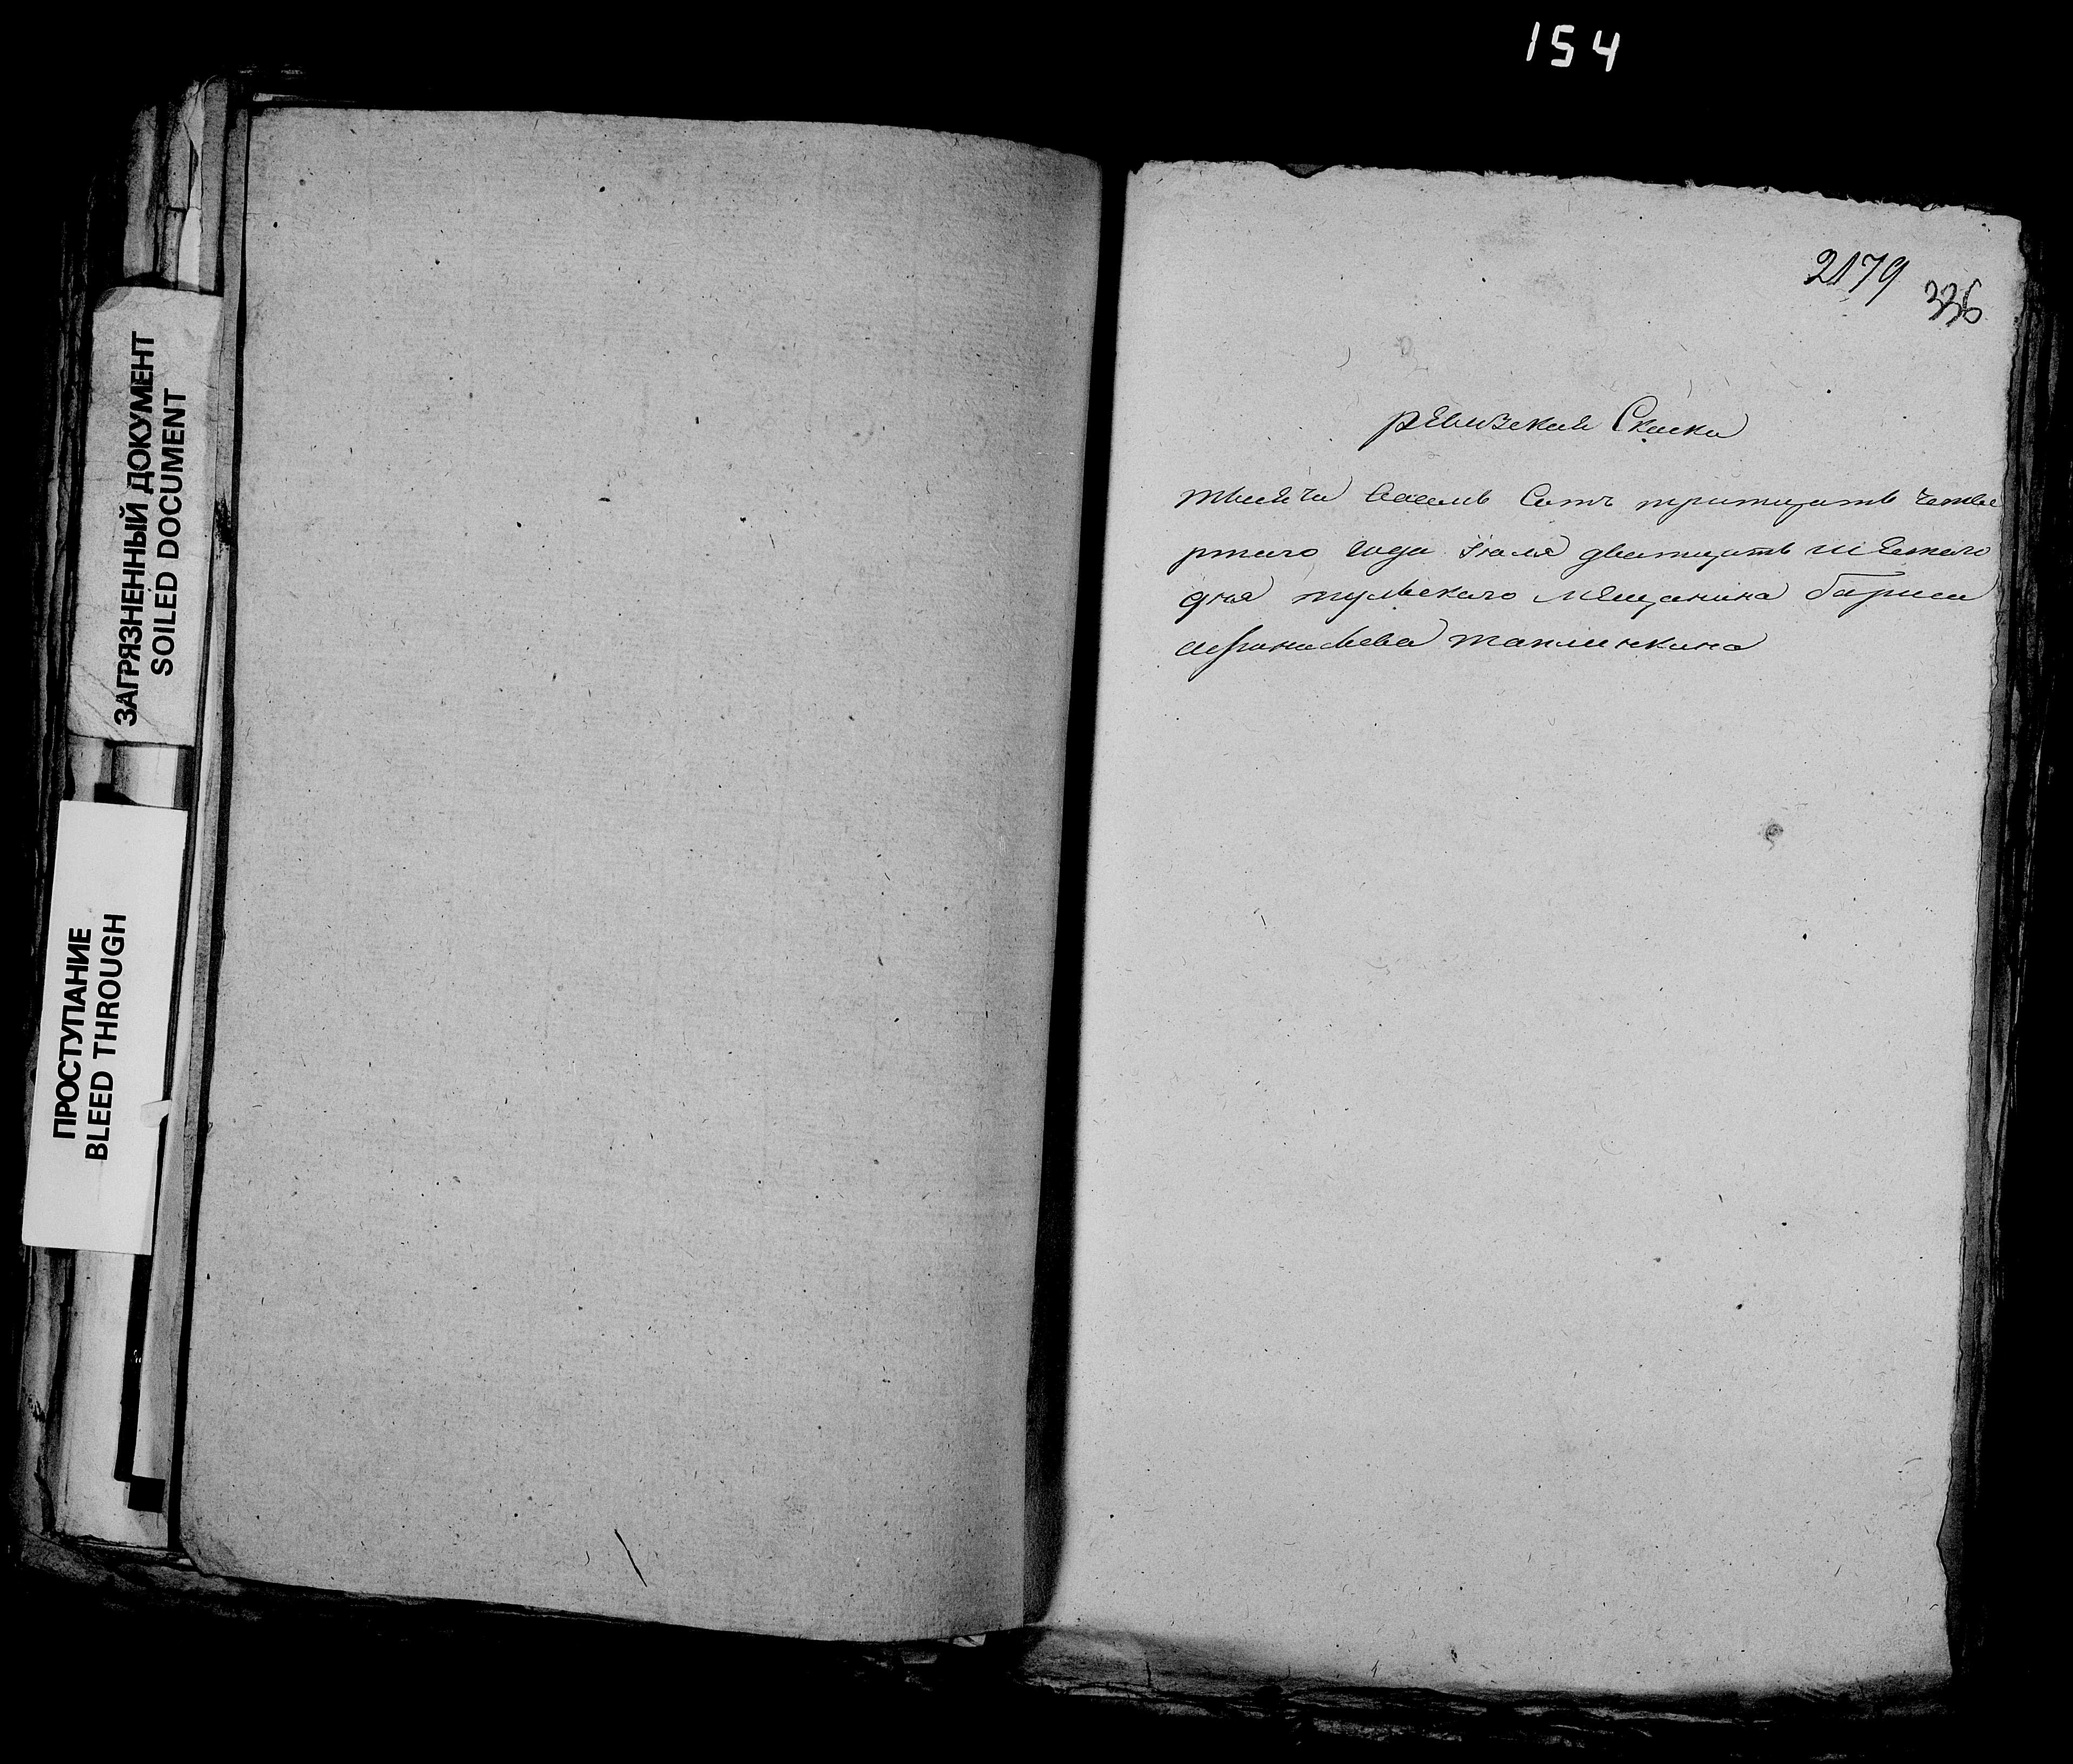 154
ЗАГРЯЗНЕННЫЙ ДОКУМЕНТ
SOILED DOCUMENT
ПРОСТУПАНИЕ
BLEED THROUGH
2179
336
ревизская Скаска
тысяча восемь Сотъ тритцать четве
ртаго года Июля дватцать шестаго
дня тульскаго мещанина бариса
афонасьева таплинкина